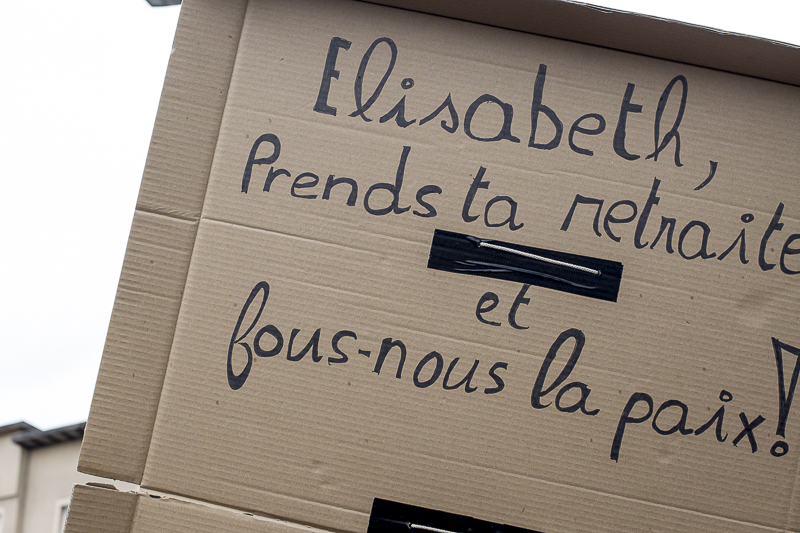 Elisabeth,
Prends ta retraite
et
fous-nous la paix!